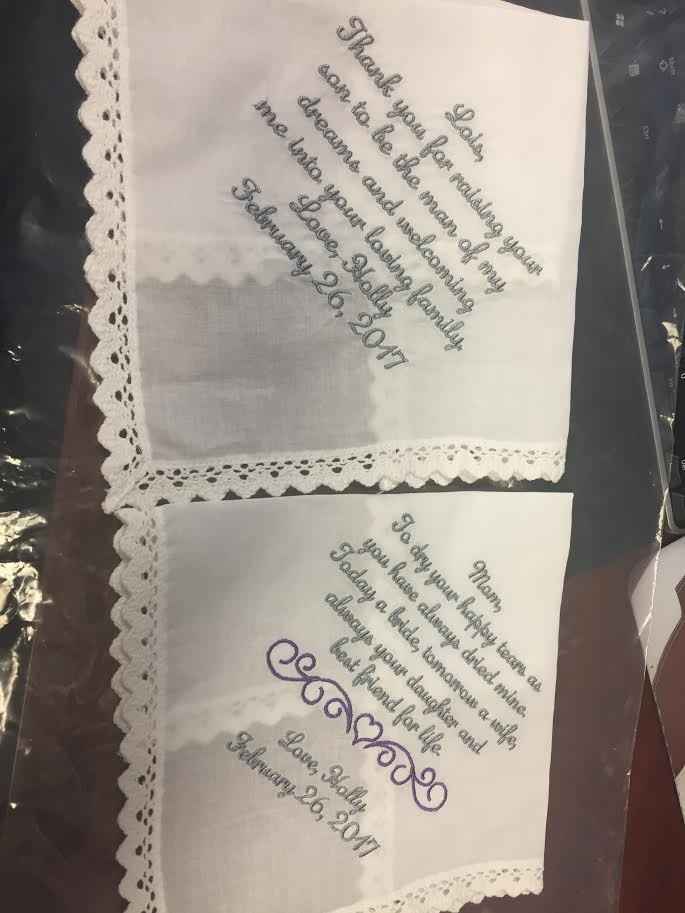 Lois,
Thank you for raising your
son to be the man of my
dreams and welcoming
me into your loving family.
Love, Holly
February 26, 2017
Mom,
To dry your happy tears as
you have always dried mine.
Today a bride, tomorrow a wife,
always your daughter and
best friend for life.
Love, Holly
February 26, 2017